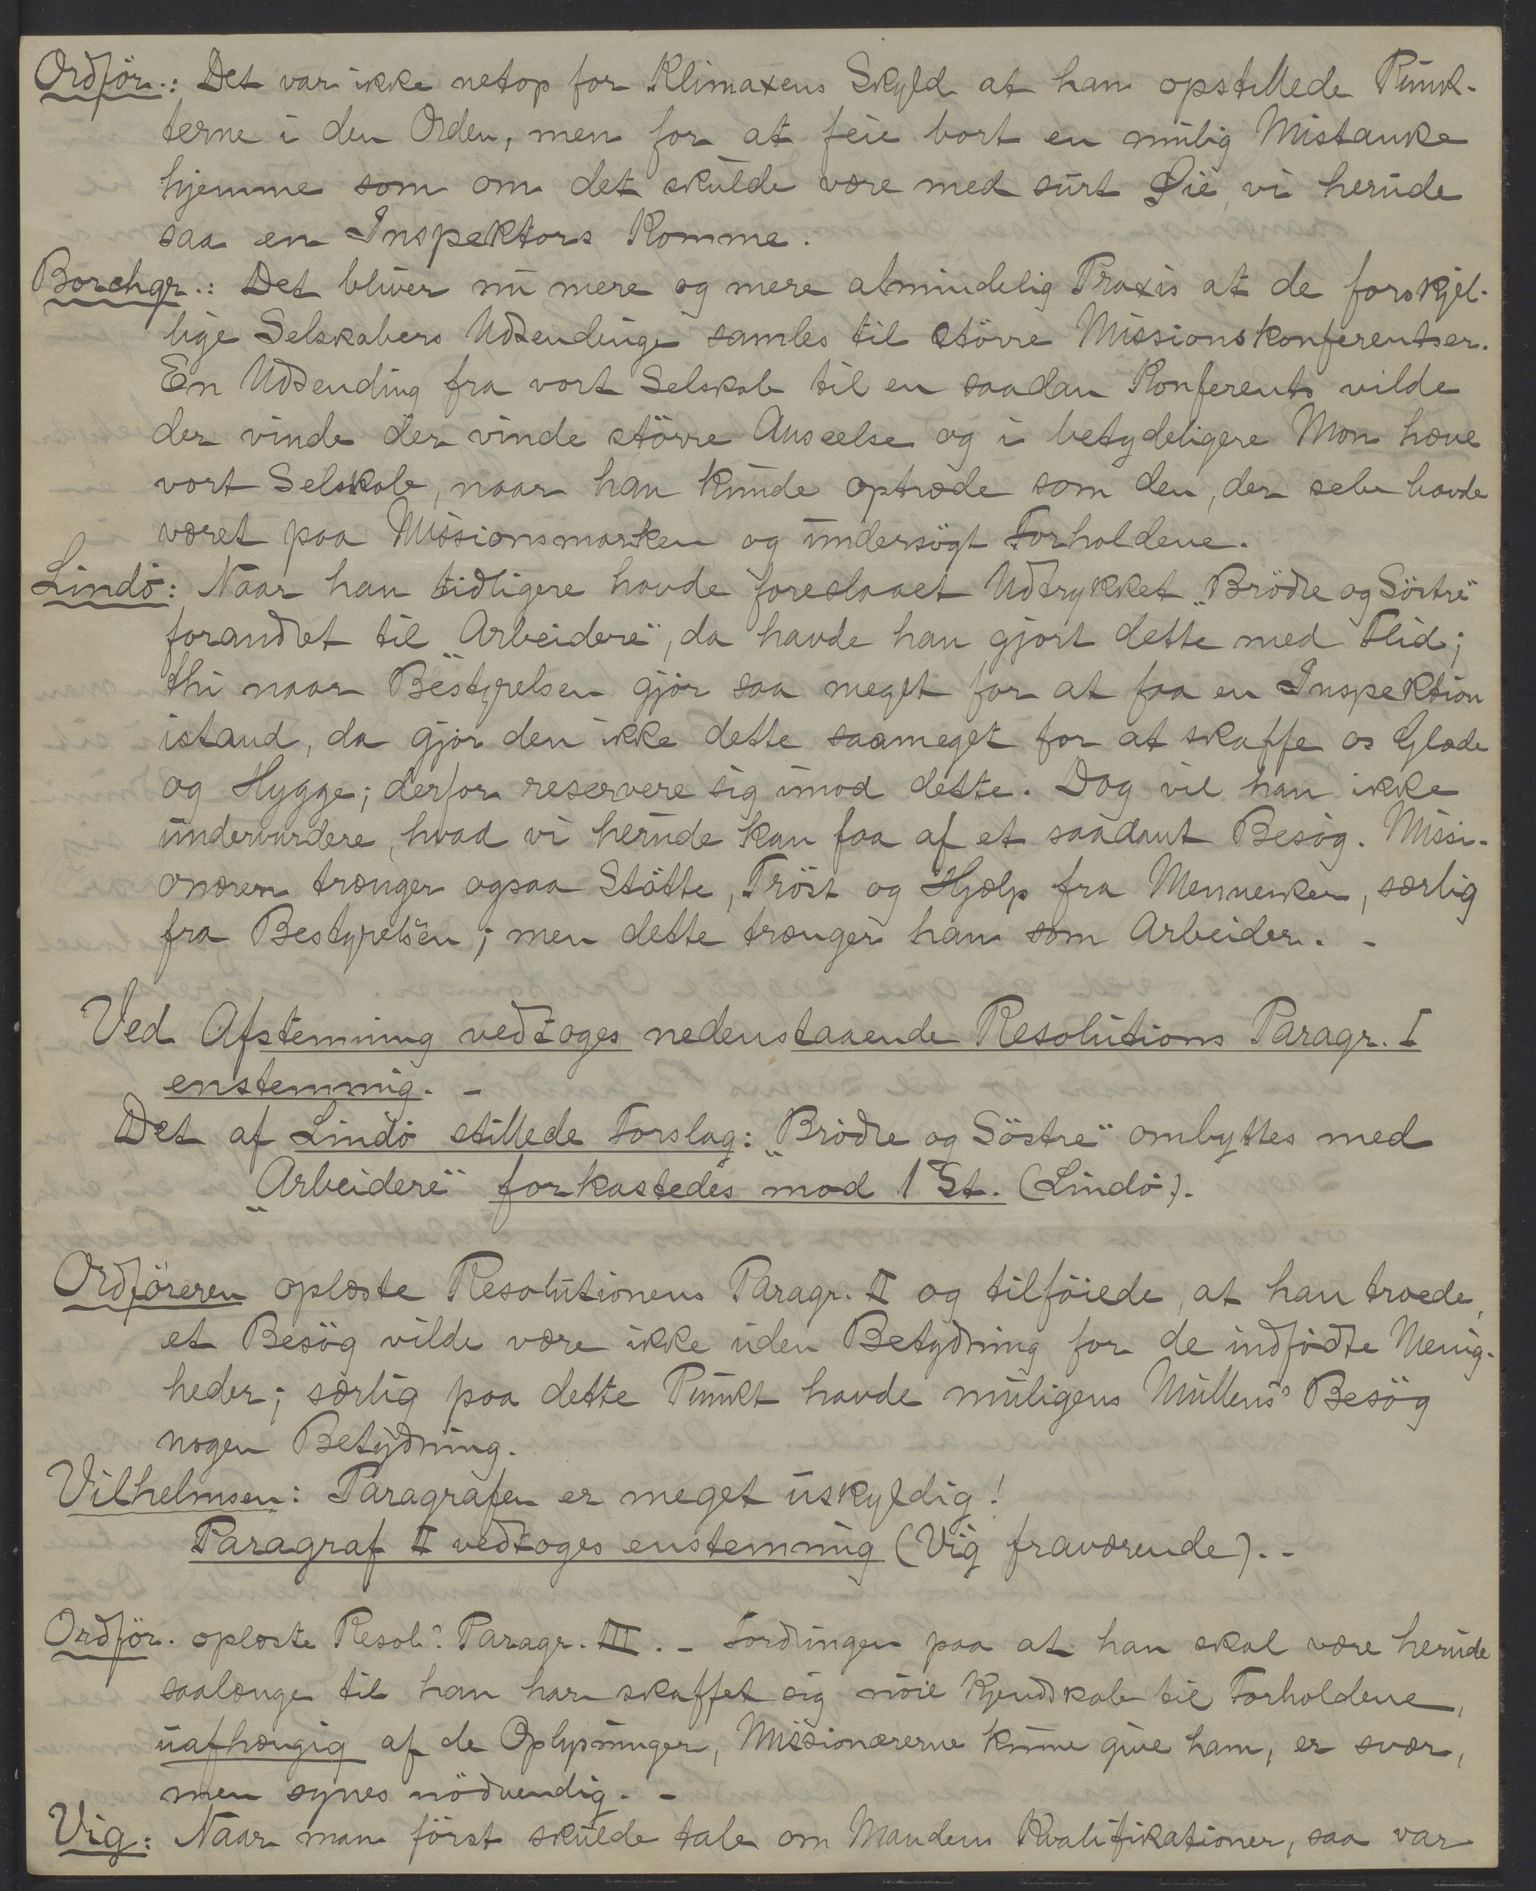 Ordför.: Det var ikke netop for Klimaxens Skyld at han opstillede Punk-
terne i den Orden, men for at feie bort en mulig Mistanke
hjemme som om det skulde være med surt Øie, vi herude
saa en Inspektors Komme.
Borchgr.: Det bliver nu mere og mere almindelig Praxis at de forskjel-
lige Selskabers Udsendinge samles til större Missionskonferentser.
En Udsending fra vort Selskab til en saadan Konferents vilde
der vinde der vinde större Anseelse og i betydeligere Mon hæve
vort Selskab, naar han kunde optræde som den, der selv havde
været paa Missionsmarken og undersögt Forholdene.
Lindö: Naar han tidligere havde foreslaaet Udtrykket „Brödre og Söstre"
forandret til „Arbeidere", da havde han gjort dette med Flid;
thi naar Bestyrelsen gjör saa meget for at faa en Inspektion
istand, da gjör den ikke dette saameget for at skaffe os Glæde
og Hygge; derfor reservere sig imod dette. Dog vil han ikke
undervurdere, hvad vi herude kan faa af et saadant Besög. Missi-
onæren trænger ogsaa Stötte, Tröst og Hjælp fra Mennesker, særlig
fra Bestyrelsen; men dette trænger han som Arbeider. -
Ved Afstemning vedtoges nedenstaaende Resolutions Paragr. I
enstemmig. -
Det af Lindö stillede Forslag: „Brödre og Söstre" ombyttes med
„Arbeidere" forkastedes mod 1 St. (Lindö).
Ordföreren oplæste Resolutionens Paragr. II og tilföiede, at han troede,
et Besög vilde være ikke uden Betydning for de indfödte Menig-
heder; særlig paa dette Punkt havde muligens Mullens' Besög
nogen Betydning.
Vilhelmsen: Paragrafen er meget uskyldig!
Paragraf II vedtoges enstemmig (Vig fraværende). -
Ordför. oplæste Resol: Paragr. III. - Fordringen paa at han skal være herude
saalænge til han har skaffet sig nöie Kjendskab til Forholdene,
uafhængig af de Oplysninger, Missionærerne kunne give ham, er svær,
men synes nödvendig. -
Vig: Naar man först skulde tale om Mandens Kvalifikationer, saa var